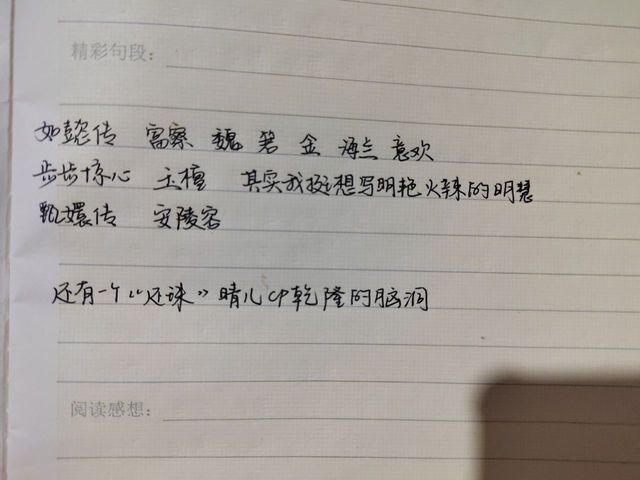 精彩句段：
如懿传 富察 魏 箬 金 海兰 意欢
步步惊心 玉檀 其实我挺想写明艳火辣的明慧
甄嬛传 安陵容
还有一个“还珠”晴儿cp乾隆的脑洞
阅读感想：